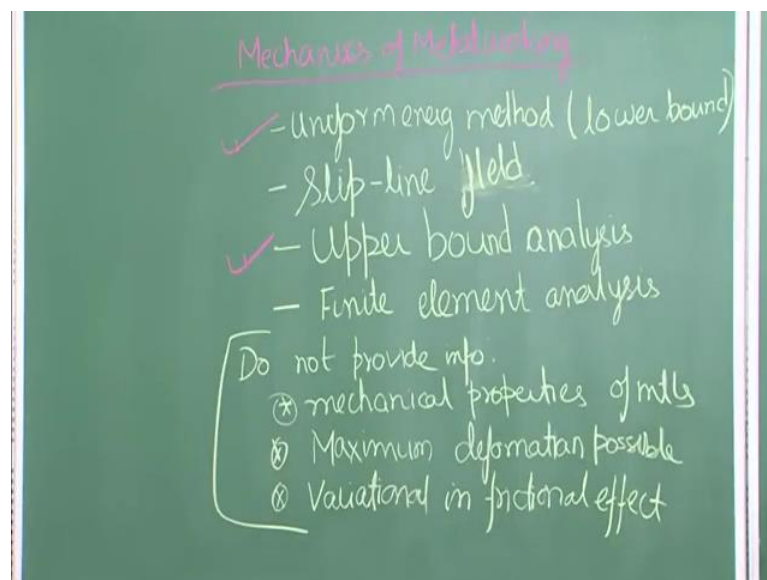 Mechanics of Metalworking
- Uniform energ method (lower bound)
- Slip-line field
- Upper bound analysis
- Finite element analysis
Do not provide info.
* mechanical properties of mtls
* Maximum deformation possible
* Variational in frictional effect